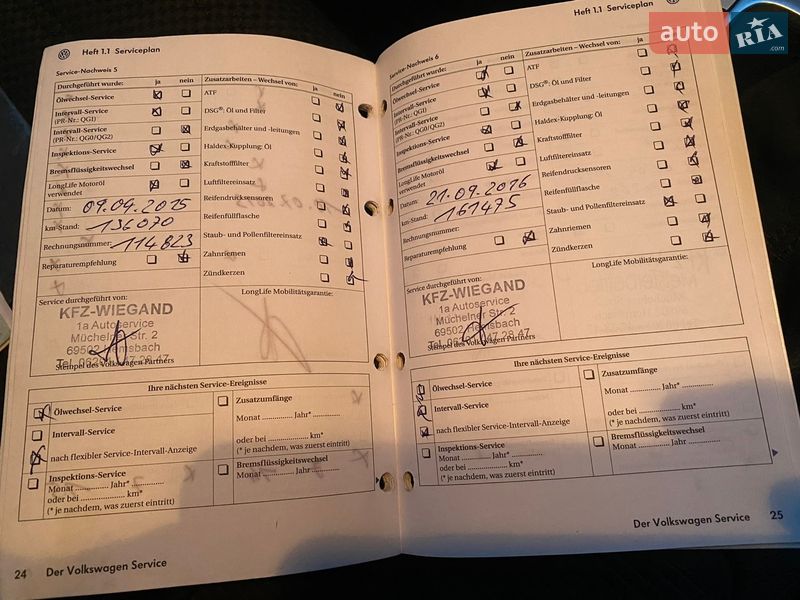 Heft 1.1 Serviceplan
Service-Nachweis 5
Durchgeführt wurde: ja nein
Ölwechsel-Service
Intervall-Service
(PR-Nr.: QG1)
Intervall-Service
(PR-Nr.: QG0/QG2)
Inspektions-Service
Bremsflüssigkeitswechsel
LongLife Motoröl
verwendet
Datum: 09.04.2015
km-Stand: 136070
Rechnungsnummer: 114823
Reparaturempfehlung
Zusatzarbeiten – Wechsel von: ja nein
ATF
DSG®: Öl und Filter
Erdgasbehälter und -leitungen
Haldex-Kupplung: Öl
Kraftstofffilter
Luftfiltereinsatz
Reifendrucksensoren
Reifenfüllflasche
Staub- und Pollenfiltereinsatz
Zahnriemen
Zündkerzen
Service durchgeführt von:
KFZ-WIEGAND
1a Autoservice
Müchelner Str. 2
69502 Hemsbach
Stempel des Volkswagen Partners
LongLife Mobilitätsgarantie:
Ihre nächsten Service-Ereignisse
Ölwechsel-Service
Intervall-Service
nach flexibler Service-Intervall-Anzeige
Inspektions-Service
Monat ............ Jahr* ............
oder bei ............ km*
(* je nachdem, was zuerst eintritt)
Zusatzumfänge
Monat ............ Jahr* ............
oder bei ............ km*
(* je nachdem, was zuerst eintritt)
Bremsflüssigkeitswechsel
Monat ............ Jahr ............
24 Der Volkswagen Service
Heft 1.1 Serviceplan
Service-Nachweis 6
Durchgeführt wurde: ja nein
Ölwechsel-Service
Intervall-Service
(PR-Nr.: QG1)
Intervall-Service
(PR-Nr.: QG0/QG2)
Inspektions-Service
Bremsflüssigkeitswechsel
LongLife Motoröl
verwendet
Datum: 21.09.2016
km-Stand: 161475
Rechnungsnummer:
Reparaturempfehlung
Zusatzarbeiten – Wechsel von: ja
ATF
DSG®: Öl und Filter
Erdgasbehälter und -leitungen
Haldex-Kupplung: Öl
Kraftstofffilter
Luftfiltereinsatz
Reifendrucksensoren
Reifenfüllflasche
Staub- und Pollenfiltereinsatz
Zahnriemen
Zündkerzen
Service durchgeführt von:
KFZ-WIEGAND
1a Autoservice
Müchelner Str. 2
69502 Hemsbach
Stempel des Volkswagen Partners
LongLife Mobilitätsgarantie:
Ihre nächsten Service-Ereignisse
Ölwechsel-Service
Intervall-Service
nach flexibler Service-Intervall-Anzeige
Inspektions-Service
Monat ............ Jahr* ............
oder bei ............ km*
(* je nachdem, was zuerst eintritt)
Zusatzumfänge
Monat ............ Jahr* ............
oder bei ............ km*
(* je nachdem, was zuerst eintritt)
Bremsflüssigkeitswechsel
Monat ............ Jahr ............
Der Volkswagen Service 25
auto RIA .com